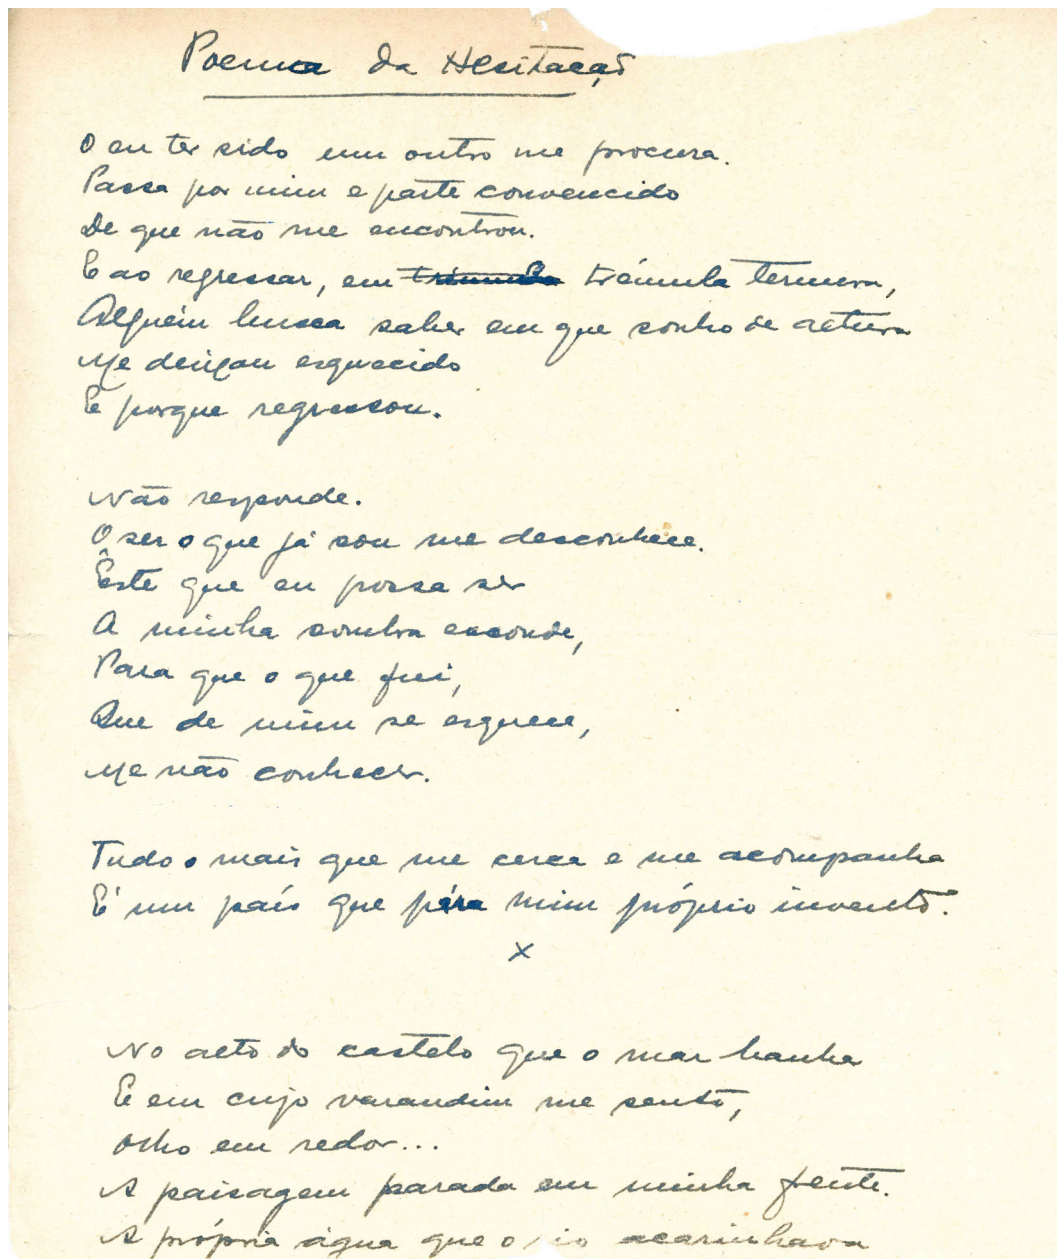 Poema da Hesitação
O eu ter sido um outro me procura.
Passa por mim e parte convencido
De que não me encontrou.
E ao regressar, em trémula trémula ternura,
Alguém busca saber em que sonho de altura
Me deixou esquecido
E porque regressou.
Não responde.
O ser o que já sou me desconhece.
Êste que eu possa ser
A minha sombra esconde,
Para que o que fui,
Que de mim se esquece,
Me não conhecer.
Tudo o mais que me cerca e me acompanha
É um país que pára mim próprio invento.
x
No alto do castelo que o mar banha
E em cujo varandim me sento,
Olho em redor...
A paisagem parada em minha frente.
A própria água que o rio acarinhava